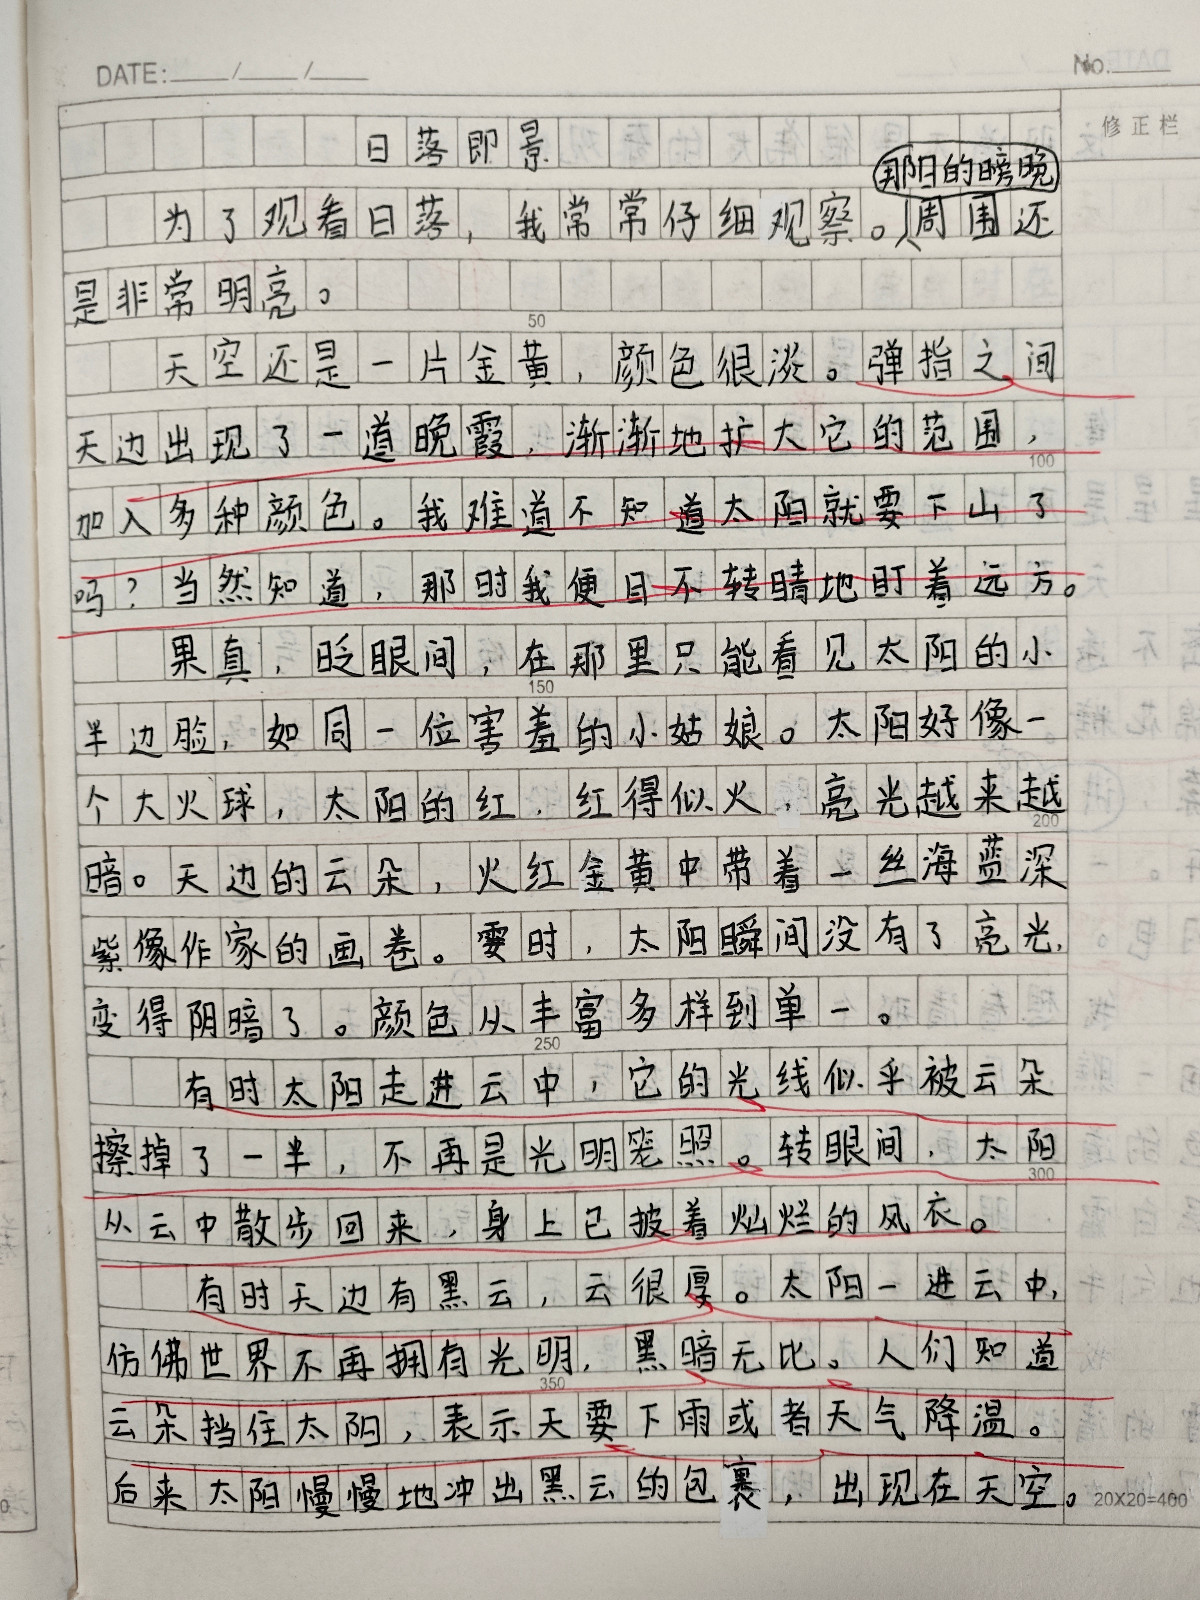 DATE: / /
No.
修正栏
日落即景
那阳的膀晚
为了观看日落，我常常仔细观察。周围还
是非常明亮。
50
天空还是一片金黄，颜色很淡。弹指之间
天边出现了一道晚霞，渐渐地扩大它的范围，
100
加入多种颜色。我难道不知道太阳就要下山了
吗？当然知道，那时我便目不转睛地盯着远方。
果真，眨眼间，在那里只能看见太阳的小
150
半边脸，如同一位害羞的小姑娘。太阳好像一
个大火球，太阳的红，红得似火，亮光越来越
200
暗。天边的云朵，火红金黄中带着一丝海蓝深
紫像作家的画卷。霎时，太阳瞬间没有了亮光，
变得阴暗了。颜色从丰富多样到单一。
250
有时太阳走进云中，它的光线似乎被云朵
擦掉了一半，不再是光明笼照。转眼间，太阳
300
从云中散步回来，身上已披着灿烂的风衣。
有时天边有黑云，云很厚。太阳一进云中，
仿佛世界不再拥有光明，黑暗无比。人们知道
350
云朵挡住太阳，表示天要下雨或者天气降温。
后来太阳慢慢地冲出黑云的包裹，出现在天空。
20X20=400